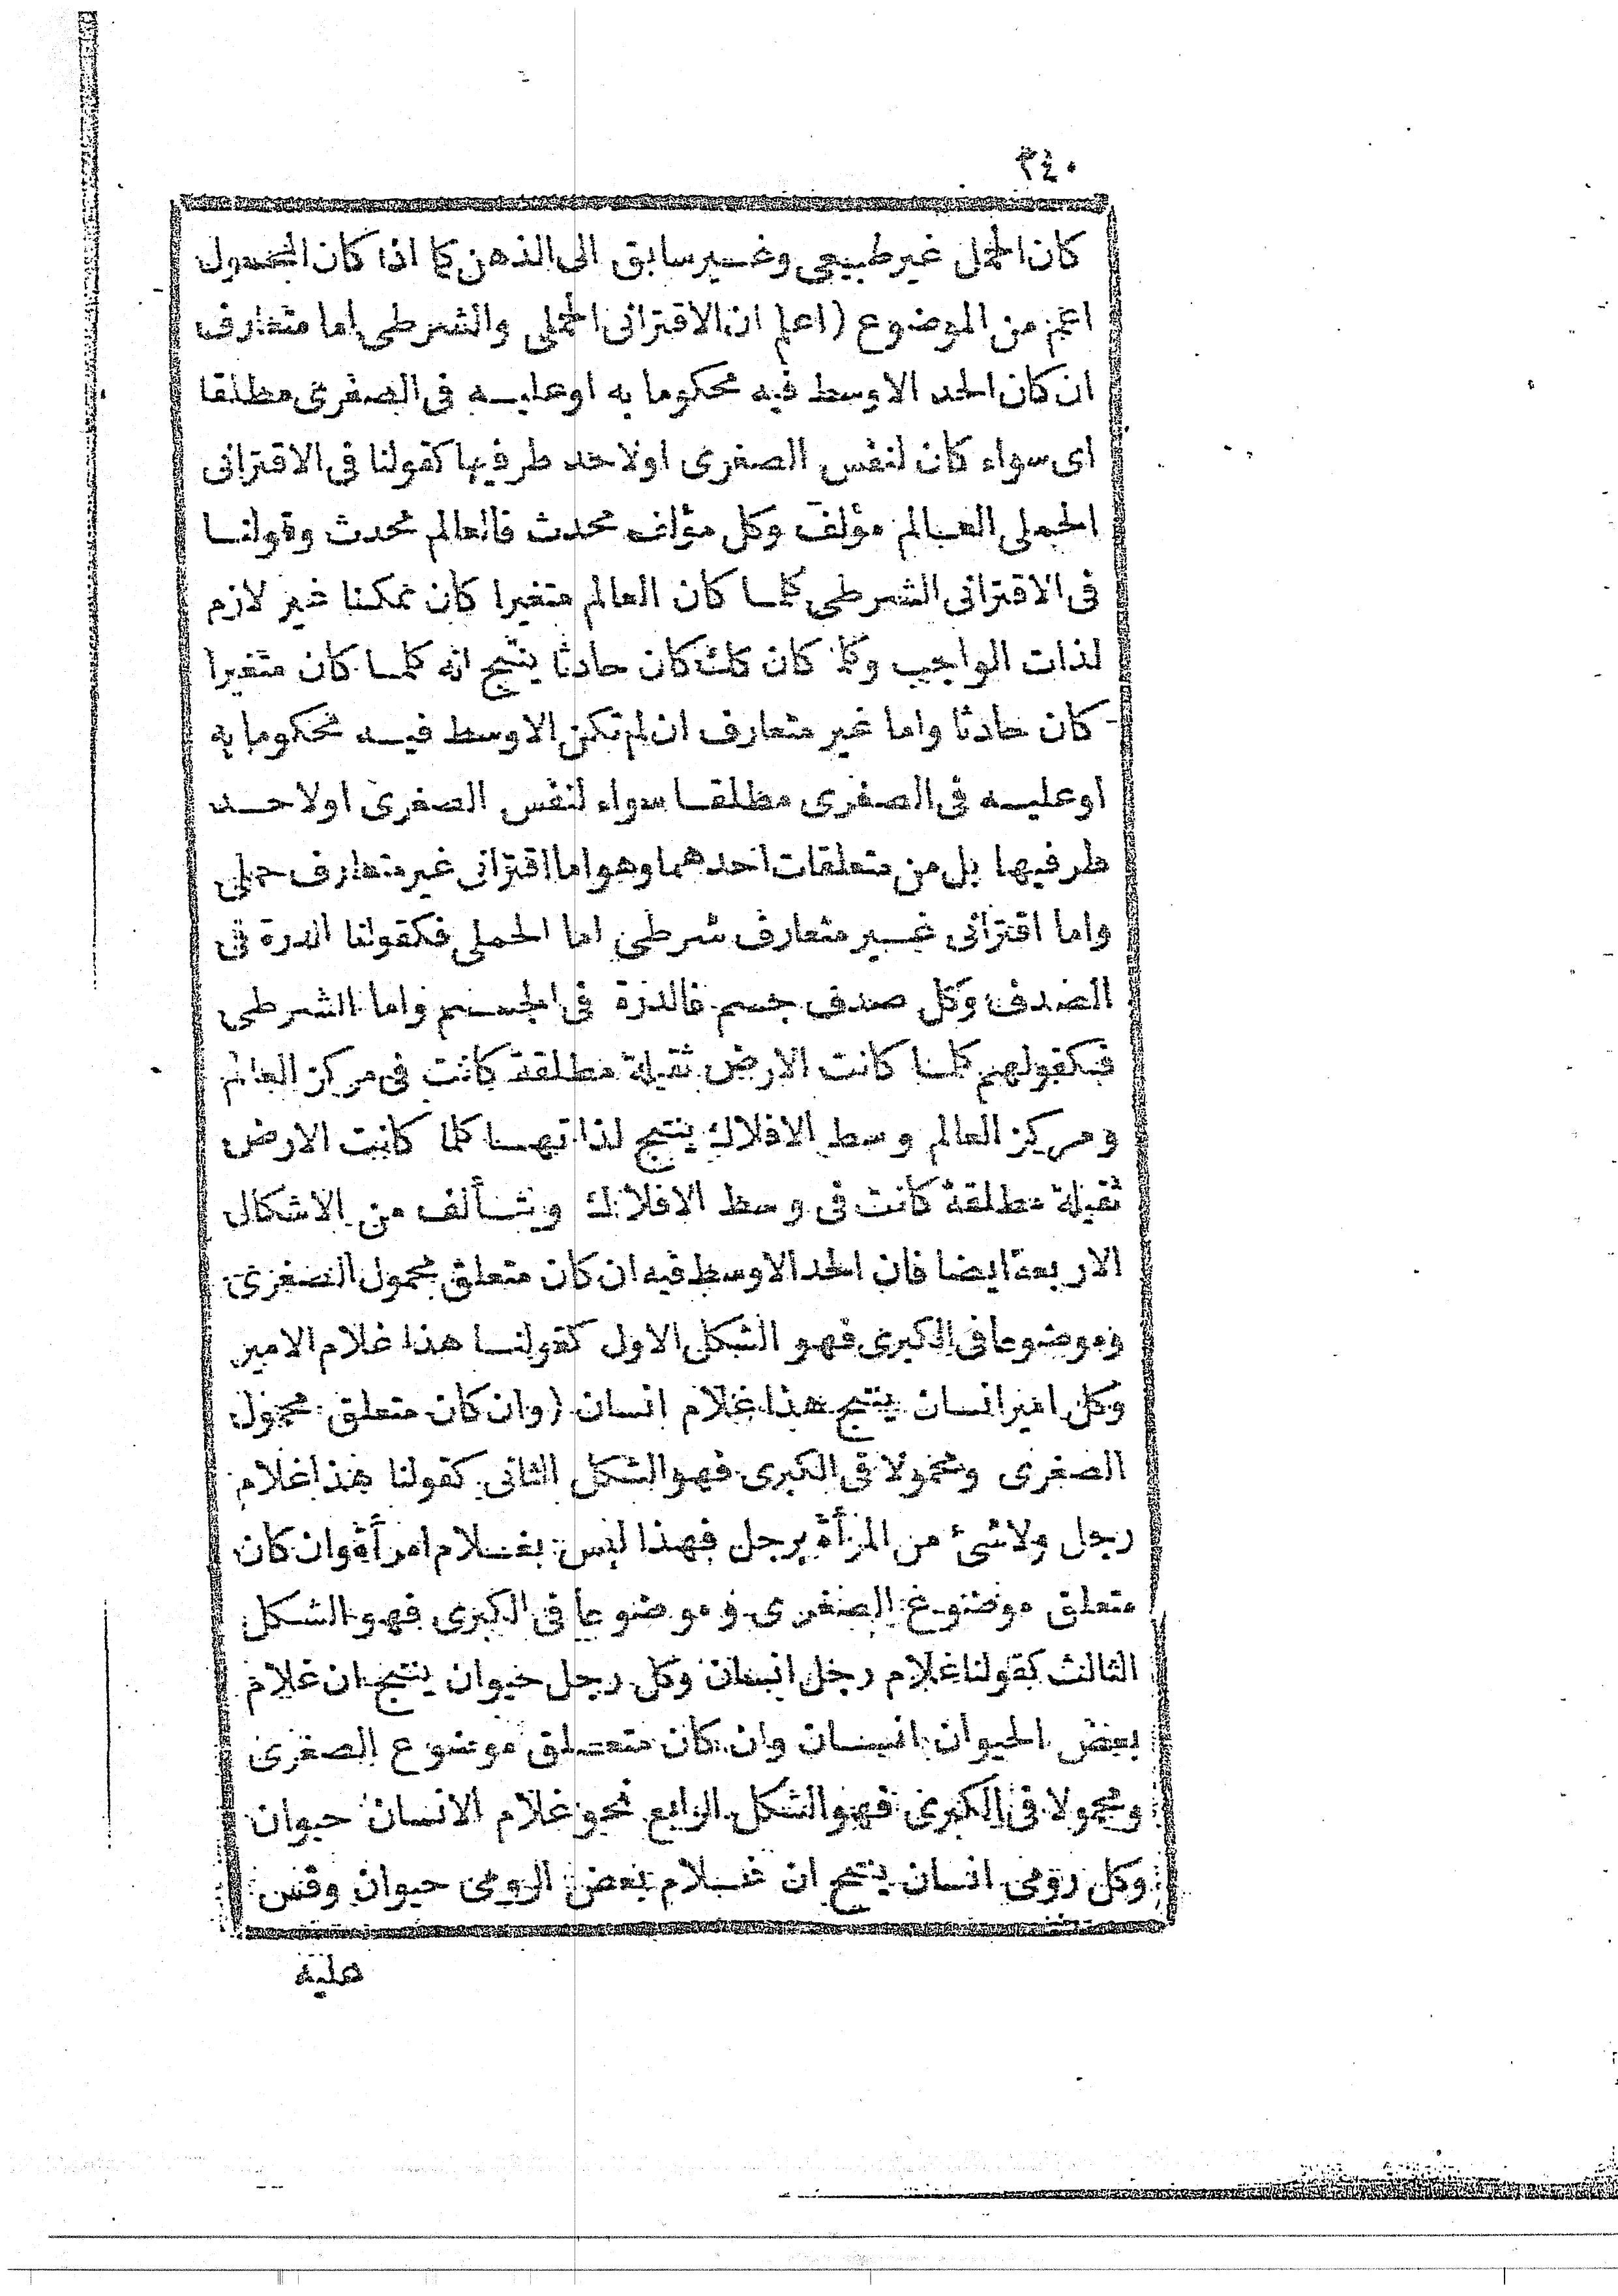 ٢٤٠
كان الحمل غير طبيعى وغير سابق الى الذهن كما اذا كان المحمول
اعم من الموضوع (اعلم ان الاقترانى الحملى والشرطى اما متعارف
ان كان الحد الاوسط فيه محكوما به او عليه فى الصغرى مطلقا
اى سواء كان لنفس الصغرى او لاحد طرفيها كقولنا فى الاقترانى
الحملى العالم مؤلف وكل مؤلف محدث فالعالم محدث وقولنا
فى الاقترانى الشرطى كلما كان العالم متغيرا كان ممكنا غير لازم
لذات الواجب وكلما كان كك كان حادثا ينتج انه كلما كان متغيرا
كان حادثا واما غير متعارف ان لم تكن الاوسط فيه محكوما به
او عليه فى الصغرى مطلقا سواء لنفس الصغرى او لاحد
طرفيها بل من متعلقات احدهما وهو اما اقترانى غير متعارف حملى
واما اقترانى غير متعارف شرطى اما الحملى فكقولنا الدرة فى
الصدف وكل صدف جسم فالدرة فى الجسم واما الشرطى
فكقولهم كلما كانت الارض ثقيلة مطلقة كانت فى مركز العالم
ومركز العالم وسط الافلاك ينتج لذاتها كلما كانت الارض
ثقيلة مطلقة كانت فى وسط الافلاك ويتألف من الاشكال
الاربعة ايضا فان الحد الاوسط فيه ان كان متعلق محمول الصغرى
وموضوعا فى الكبرى فهو الشكل الاول كقولنا هذا غلام الامير
وكل امير انسان ينتج هذا غلام انسان (وان كان متعلق محمول
الصغرى ومحمولا فى الكبرى فهو الشكل الثانى كقولنا هذا غلام
رجل ولا شئ من المرأة برجل فهذا ليس بغلام امرأة وان كان
متعلق موضوع الصغرى وموضوعا فى الكبرى فهو الشكل
الثالث كقولنا غلام رجل انسان وكل رجل حيوان ينتج ان غلام
بعض الحيوان انسان وان كان متعلق موضوع الصغرى
ومحمولا فى الكبرى فهو الشكل الرابع نحو غلام الانسان حيوان
وكل رومى انسان ينتج ان غلام بعض الرومى حيوان وقس
عليه